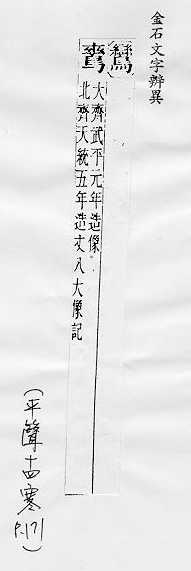 金石文字辨異
鸞
大齊武平元年造像
北齊天統五年造丈八大像記
(平聲十四寒 P.171)